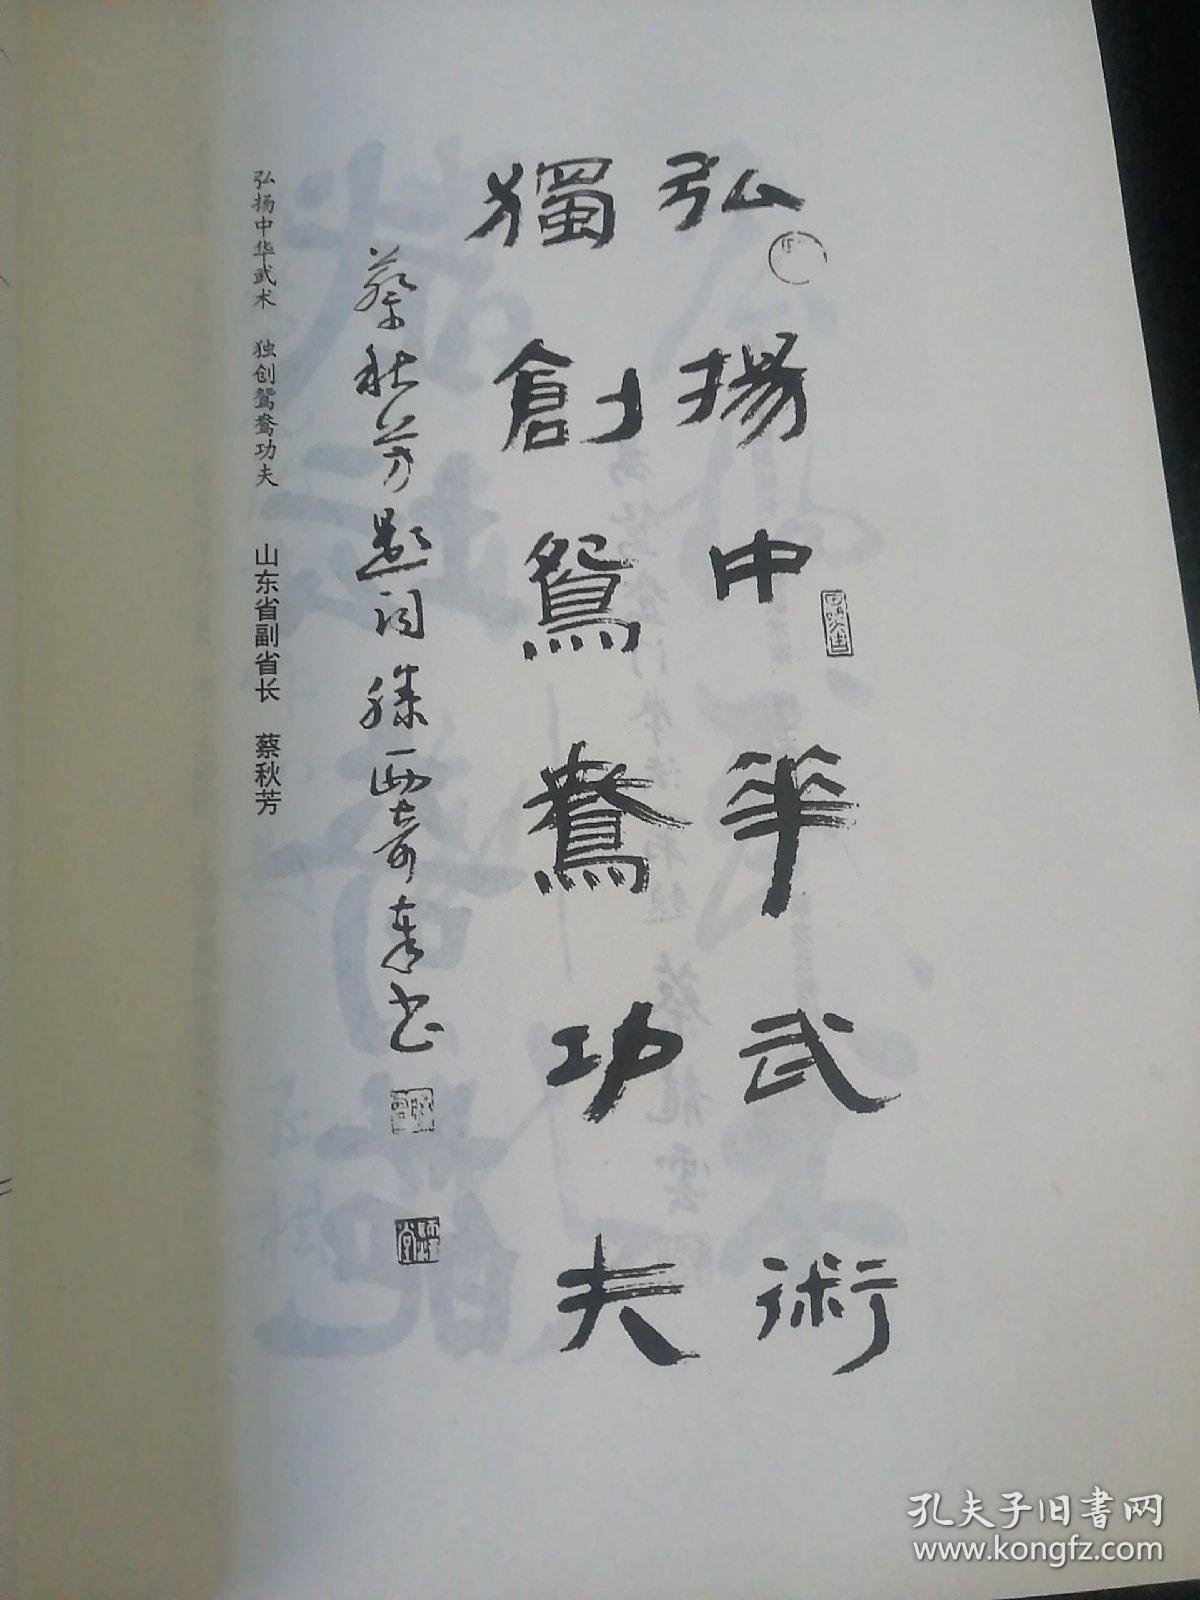 弘揚中華武術
獨創鴛鴦功夫
蔡秋芳題词滕西奇奉书
弘扬中华武术 独创鸳鸯功夫 山东省副省长 蔡秋芳
孔夫子旧书网
www.kongfz.com